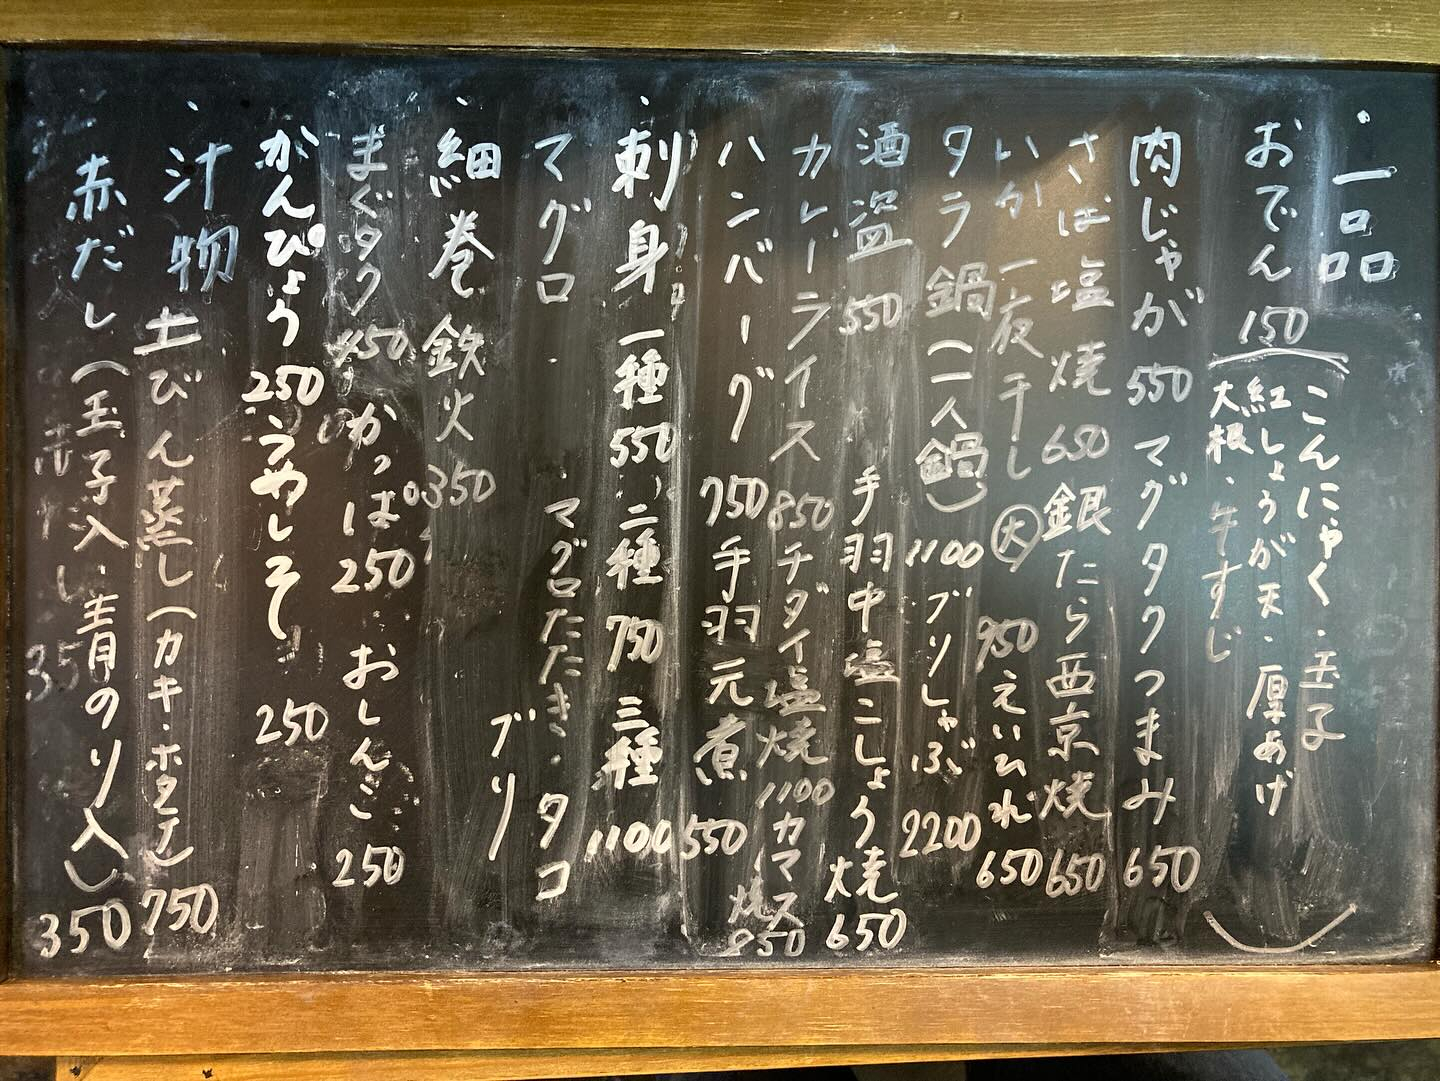 ・一品
おでん 150（こんにゃく・玉子
紅しょうが天・厚あげ
大根・牛すじ）
肉じゃが 550 マグタクつまみ 650
さば塩焼 650 銀たら西京焼 650
いか一夜干し 大 950 えいひれ 650
タラ鍋（一人鍋）1100 ブリしゃぶ 2200
酒盗 550 手羽中塩こしょう焼 650
カレーライス 850 チダイ塩焼 1100 カマス焼 850
ハンバーグ 750 手羽元煮 550
・刺身 一種 550 二種 750 三種 1100
マグロ・マグロたたき・タコ
ブリ
・細巻 鉄火 350
まぐタク 450 かっぱ 250 おしんこ 250
かんぴょう 250 うめしそ 250
・汁物 土びん蒸し（カキ・ホタテ）750
赤だし（玉子入・青のり入）350